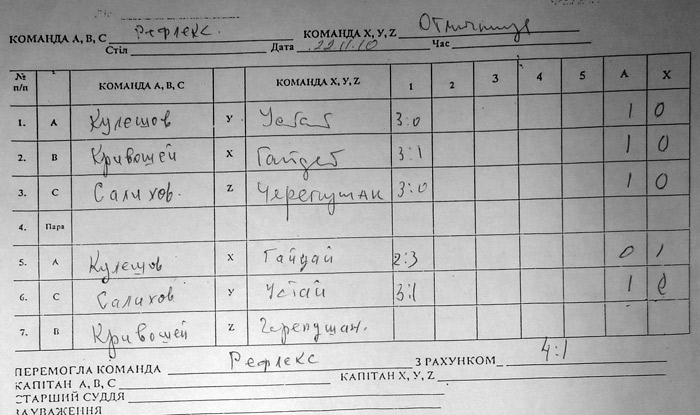 КОМАНДА А, В, С Рефлекс. КОМАНДА X, У, Z
Стіл Дата 22.11.10 Час
№ п/п КОМАНДА А, В, С КОМАНДА X, У, Z 1 2 3 4 5 А X
1. А Кулешов У 3:0 1 0
2. В Кривошей X 3:1 1 0
3. С Салихов. Z Черепушак 3:0 1 0
4. Пара
5. А Кулешов X Гайдай 2:3 0 1
6. С Салихов У Устай 3:1 1
7. В Кривошей Z Черепушак.
ПЕРЕМОГЛА КОМАНДА Рефлекс З РАХУНКОМ 4:1
КАПІТАН А, В, С КАПІТАН X, У, Z
СТАРШИЙ СУДДЯ
ЗАУВАЖЕННЯ